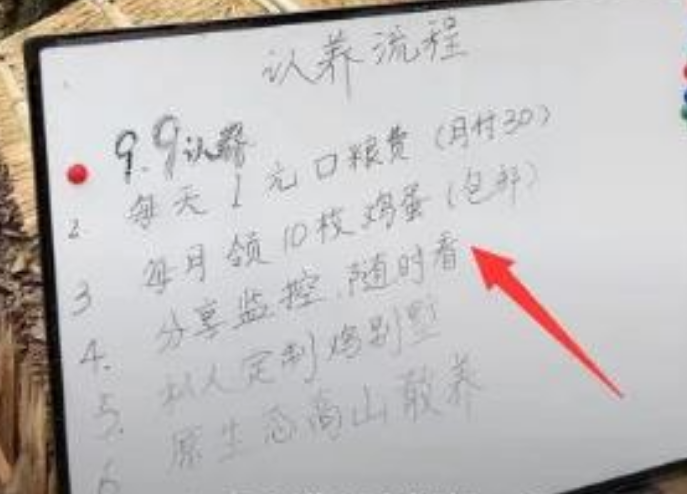 认养流程
9.9认养
2 每天1元口粮费(月付30)
3 每月领10枚鸡蛋(包邮)
4. 分享监控,随时看
5. 私人定制鸡别墅
6 原生态高山散养